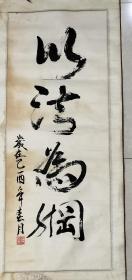 以法為綱
歲在己酉年春月